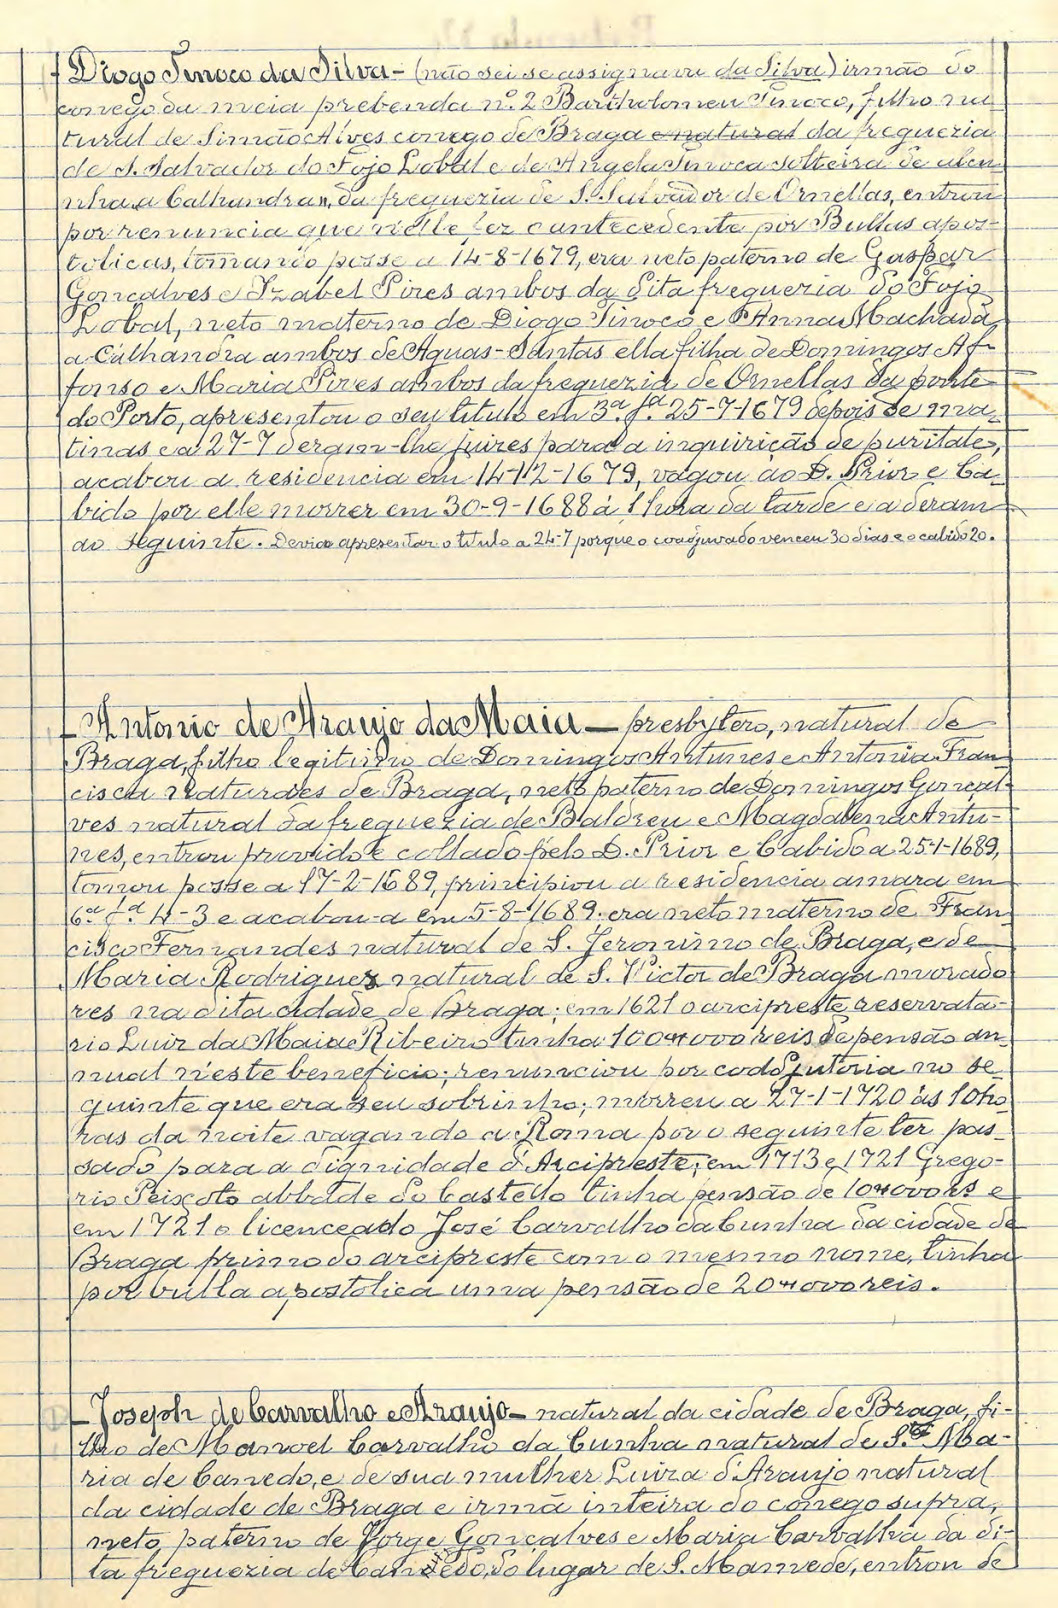 - Diogo Tinoco da Silva - (não sei se assignava da Silva) irmão do
conego da meia prebenda nº 2 Bartholomeu Tinoco, filho na
tural de Simão Alves conego de Braga e natural da freguezia
de S. Salvador do Fojo Lobal e de Angela Tinoca solteira de alcu
nha "a Calhandra", da freguezia de S. Salvador de Ornellas, entrou
por renuncia que n'elle fez o antecedente por Bullas apos-
tolicas, tomando posse a 14-8-1679, era neto paterno de Gaspar
Gonçalves e Izabel Pires ambos da dita freguezia do Fojo
Lobal, neto materno de Diogo Tinoco e Anna Machada,
a Calhandra ambos de Aguas-Santas ella filha de Domingos Af-
fonso e Maria Pires ambos da freguezia de Ornellas da ponte
do Porto, apresentou o seu titulo em 3ª fª 25-7-1679 depois de ma-
tinas e a 27-7 deram-lhe juizes para a inquirição de puritate,
acabou a residencia em 14-12-1679, vagou ao D. Prior e Ca-
bido por elle morrer em 30-9-1688 á 1 hora da tarde e a deram
ao seguinte. Devia apresentar o titulo a 24-7 porque o coadjuvado venceu 30 dias e o cabido 20.
- Antonio de Araujo da Maia - presbytero, natural de
Braga, filho legitimo de Domingos Antunes e Antonia Fran
cisca naturaes de Braga, neto paterno de Domingos Gonçal-
ves natural da freguezia de Baldreu e Magdalena Antu-
nes, entrou provido e collado pelo D. Prior e Cabido a 25-1-1689,
tomou posse a 17-2-1689, principiou a residencia amara em
6ª fª 4-3 e acabou-a em 5-8-1689. era neto materno de Fran
cisco Fernandes natural de S. Jeronimo de Braga, e de
Maria Rodrigues natural de S. Victor de Braga morado
res na dita cidade de Braga; em 1621 o arcipreste reservata-
rio Luiz da Maia e Ribeiro tinha 100$000 reis de pensão an-
nual n'este beneficio; renunciou por coadjutoria no se
guinte que era seu sobrinho; morreu a 27-1-1720 ás 10 ho-
ras da noite vagando a Roma por o seguinte ter pas-
sado para a dignidade d'Arcipreste; em 1713 e 1721 Grego-
rio Peixoto abbade do Castello tinha pensão de 10$000 rs e
em 1721 o licenceado José Carvalho da Cunha da cidade de
Braga primo do arcipreste com o mesmo nome, tinha
por bulla apostolica uma pensão de 20$000 reis.
- Joseph de Carvalho e Araujo - natural da cidade de Braga, fi-
lho de Manoel Carvalho da Cunha natural de S.ta Ma-
ria de Canedo, e de sua mulher Luiza d'Araujo natural
da cidade de Braga e irmã inteira do conego supra,
neto paterno de Jorge Gonçalves e Maria Carvalha da di-
ta freguezia de Canedo, do lugar de S. Mamede, entrou de